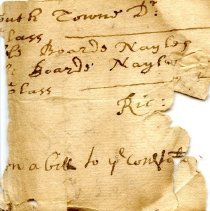 outh Towne Dr
lass
Boards Nayles
Boards Nayles
Glass
Ric:
on a bill to ye const